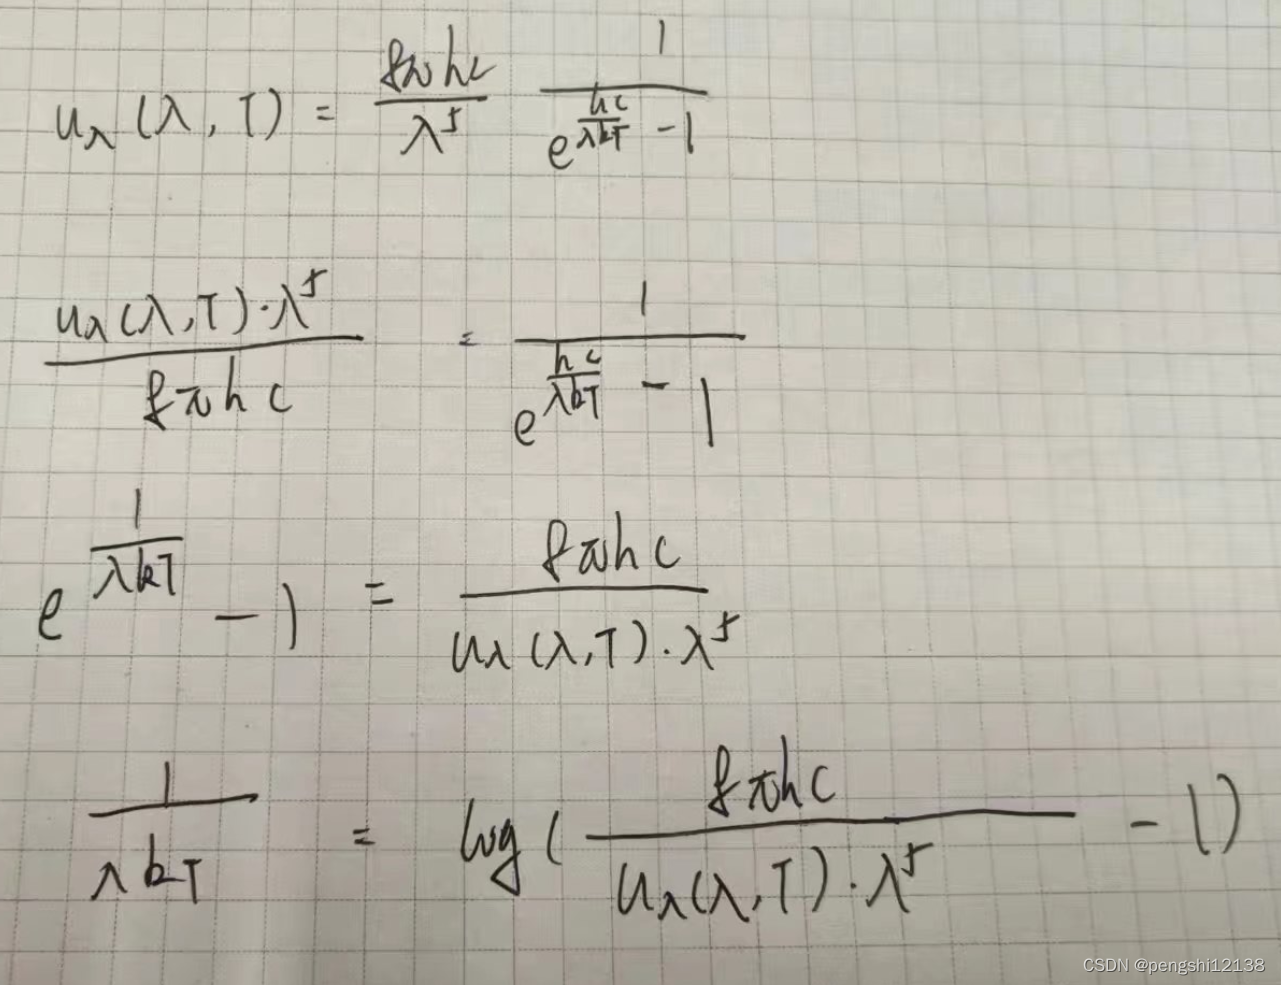 u_λ(λ,T) = \frac{8πhc}{λ^5} \frac{1}{e^{\frac{hc}{λkT}} - 1}
\frac{u_λ(λ,T)·λ^5}{8πhc} = \frac{1}{e^{\frac{hc}{λkT}} - 1}
e^{\frac{1}{λkT}} - 1 = \frac{8πhc}{u_λ(λ,T)·λ^5}
\frac{1}{λkT} = log(\frac{8πhc}{u_λ(λ,T)·λ^5} - 1)
CSDN @pengshi12138